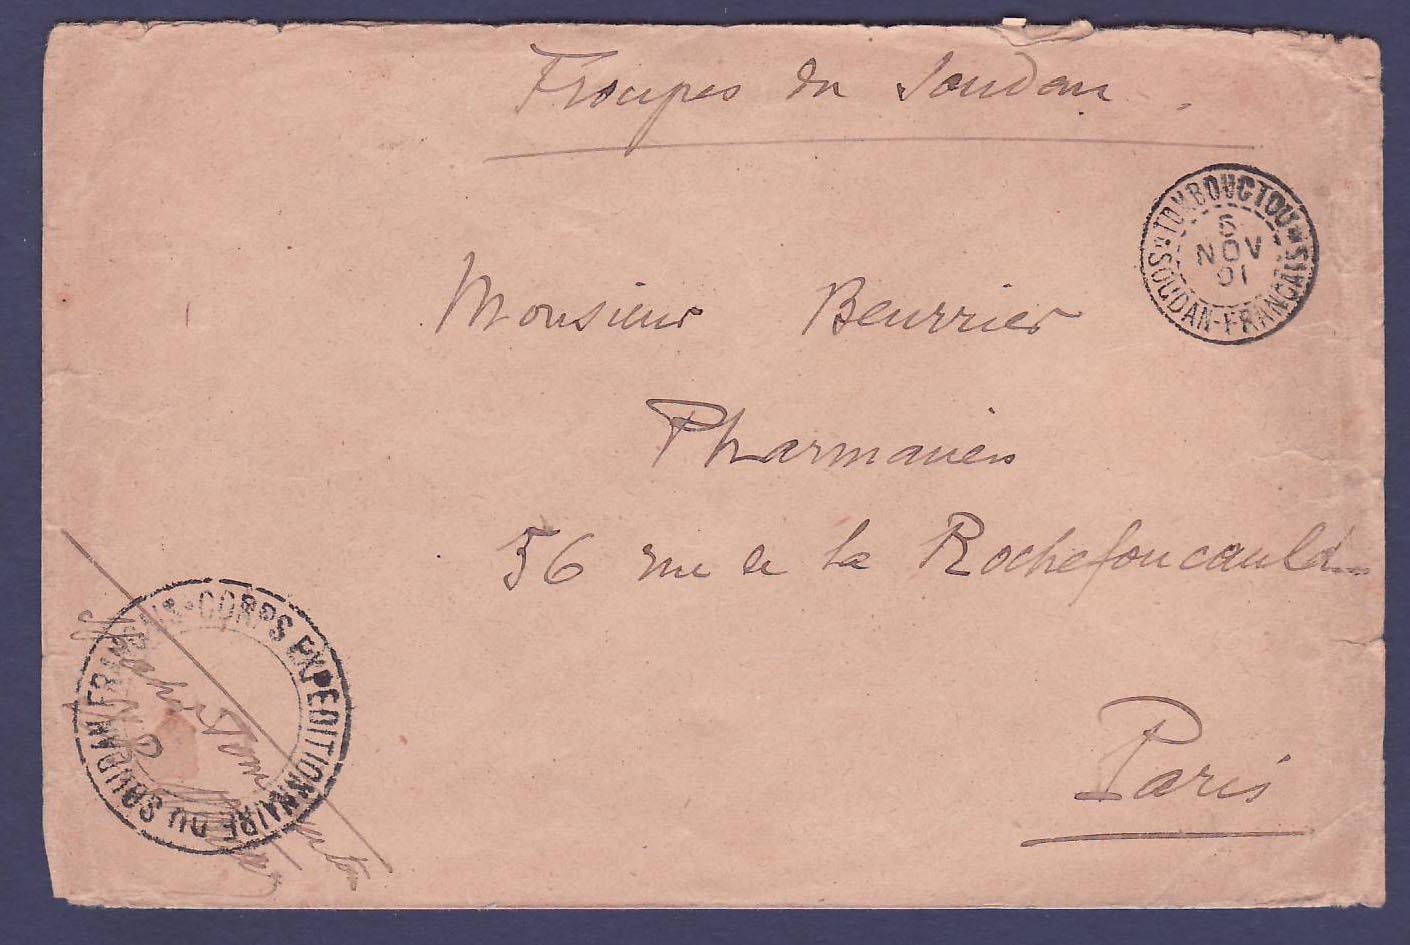 Troupes du Soudan
TOMBOUCTOU
5
NOV
01
SOUDAN-FRANÇAIS
Monsieur Beurrier
Pharmacien
56 rue de la Rochefoucauld
Paris
CORPS EXPEDITIONNAIRE DU SOUDAN FRANÇAIS